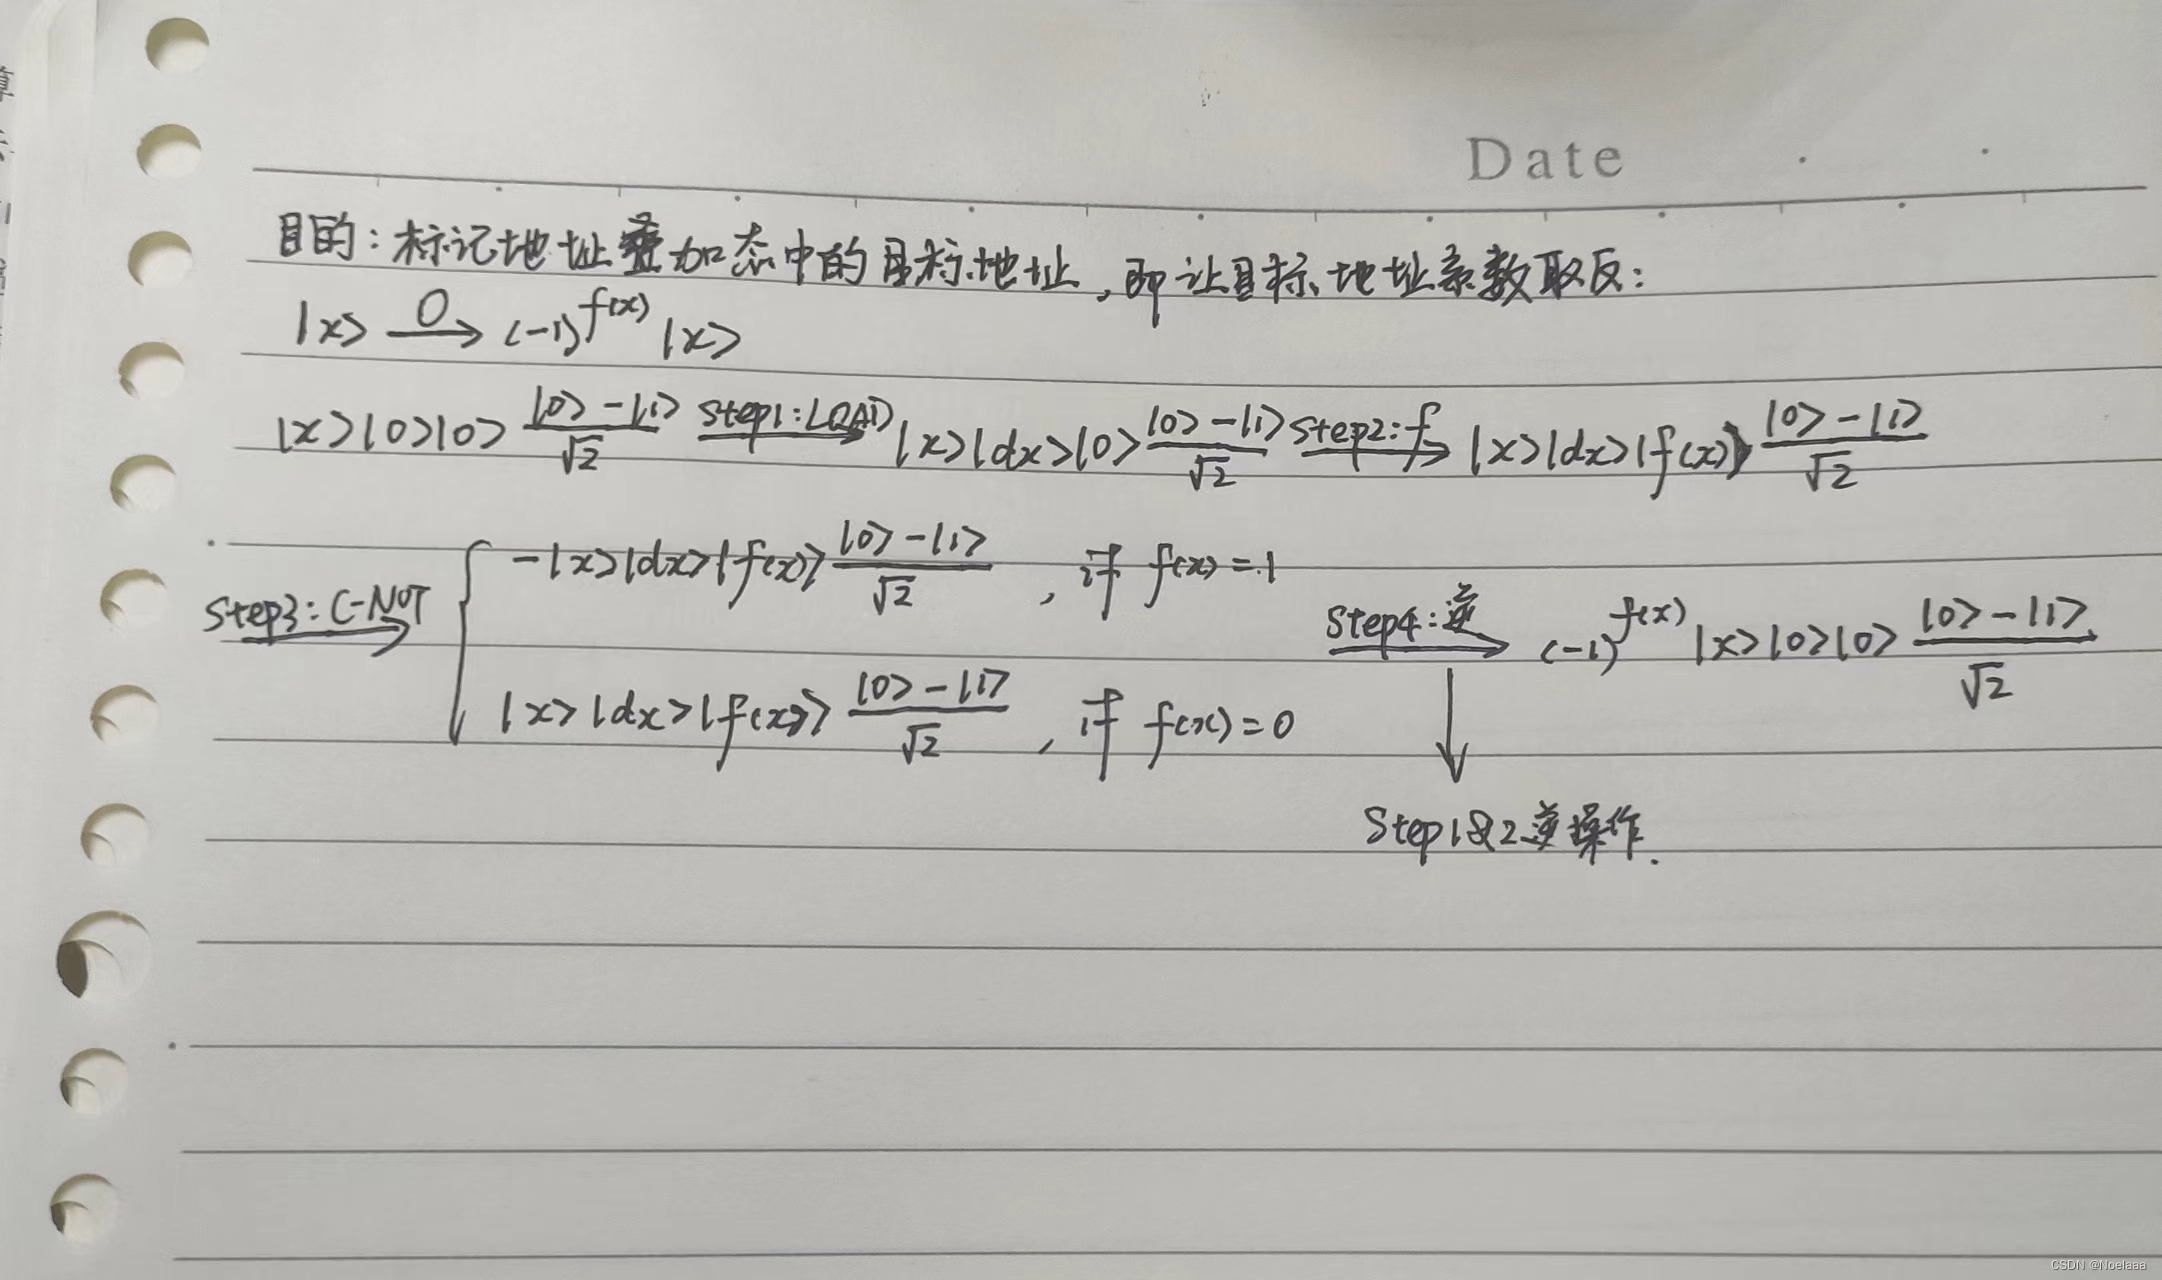 Date
目的：标记地址叠加态中的目标地址，即让目标地址系数取反：
|x> —O→ (-1)^{f(x)} |x>
|x>|0>|0> (|0>-|1>)/√2 —step1: LOAD→ |x>|dx>|0> (|0>-|1>)/√2 —step2: f→ |x>|dx>|f(x)> (|0>-|1>)/√2
step3: C-NOT→ { -|x>|dx>|f(x)> (|0>-|1>)/√2 , if f(x)=1
|x>|dx>|f(x)> (|0>-|1>)/√2 , if f(x)=0
Step4: 逆→ (-1)^{f(x)} |x>|0>|0> (|0>-|1>)/√2
↓
Step1&2逆操作.
CSDN @Noelaaa